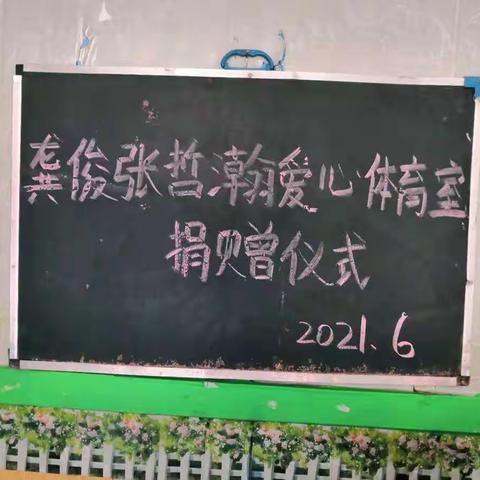 龚俊张哲瀚爱心体育室
捐赠仪式
2021.6